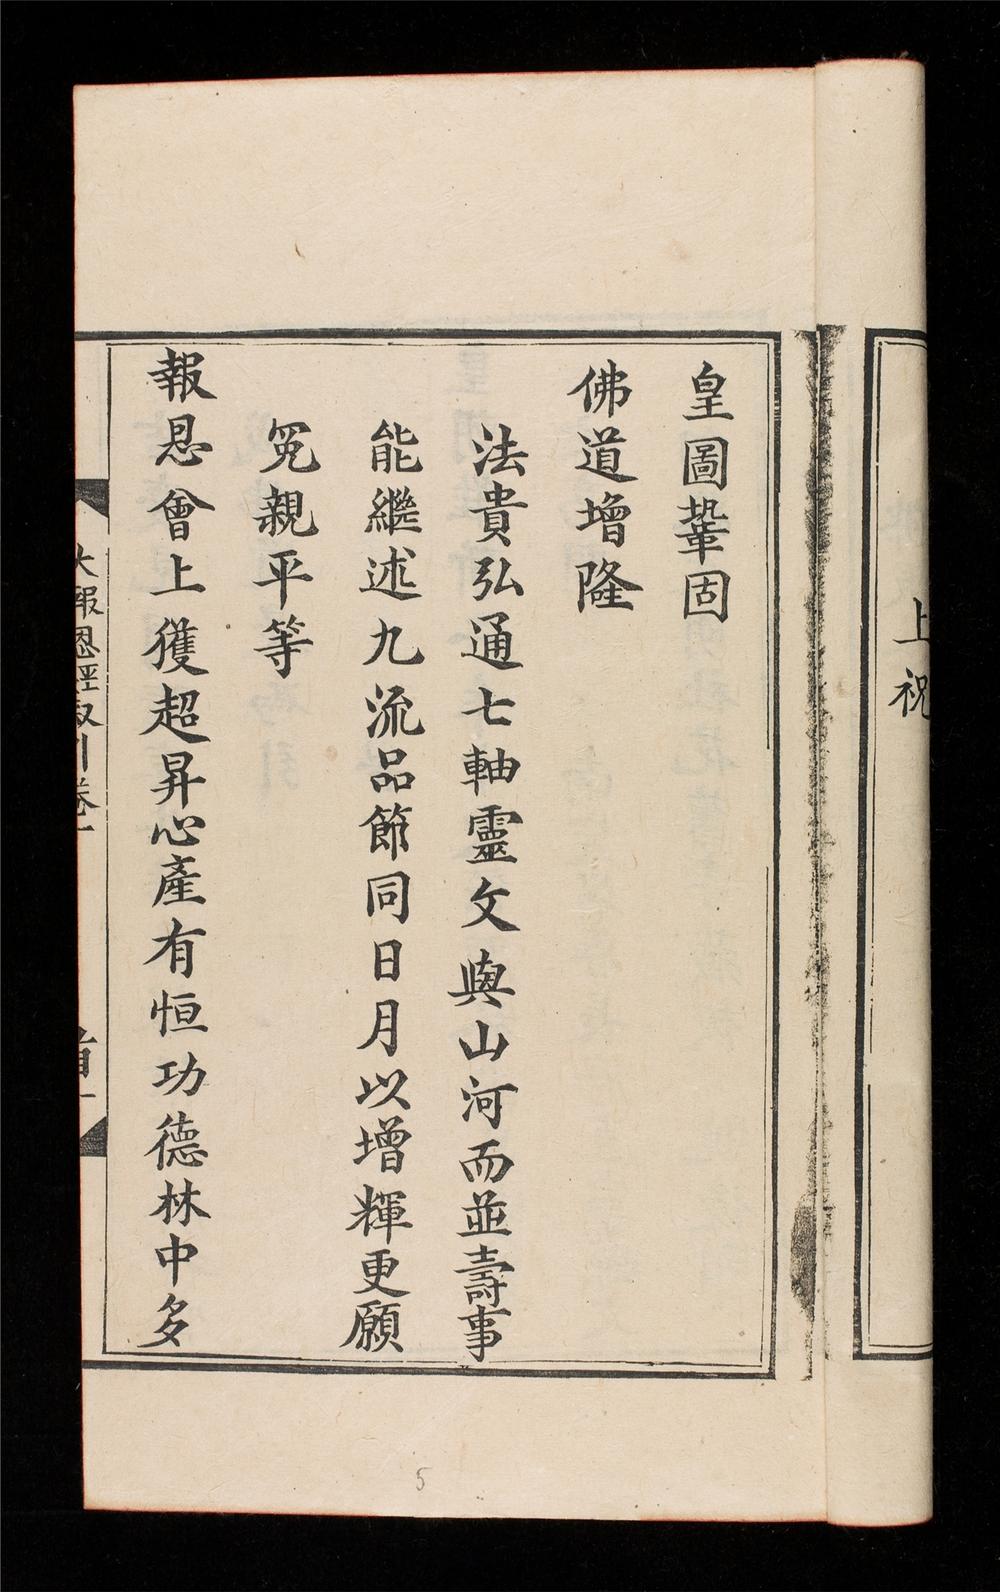 上祝
皇圖鞏固
佛道增隆
法貴弘通七軸靈文與山河而並壽事
能繼述九流品節同日月以增輝更願
冤親平等
報恩會上獲超昇心產有恒功德林中多
大報恩經叙引卷一
首一
5